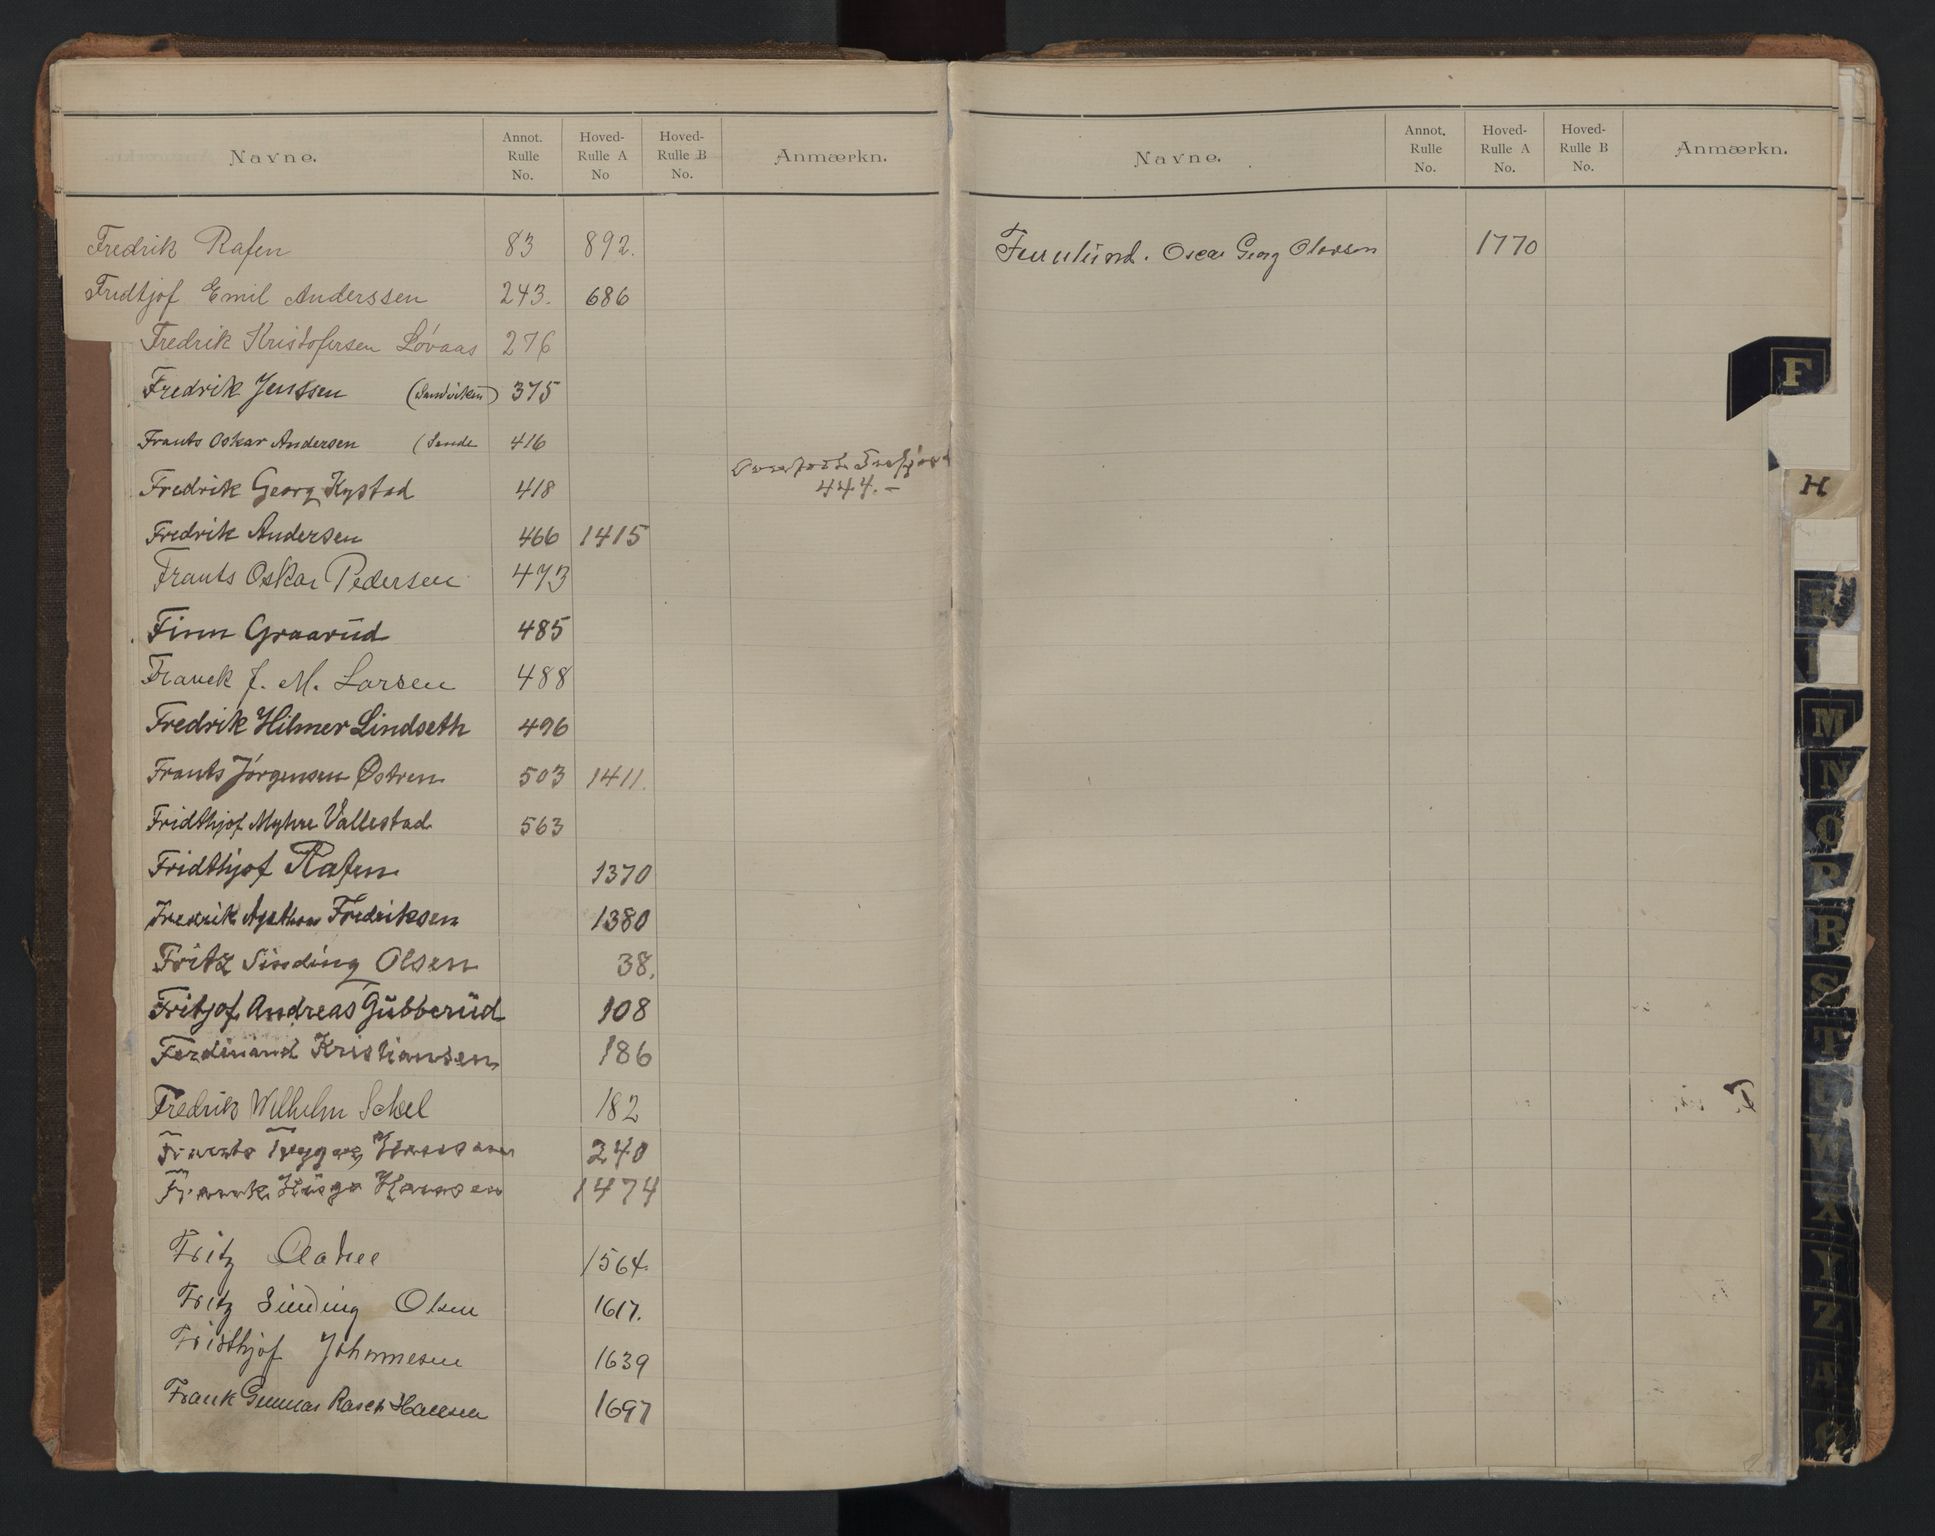 Navne. Annot. Rulle No. Hoved-Rulle A No Hoved-Rulle B No. Anmærkn.
Fredrik Rafen 83 892.
Fridtjof Emil Anderssen 243. 686
Fredrik Kristofersen Lövaas 276
Fredrik Jenssen (Sandviken) 375
Frants Oskar Andersen (Sande 416
Fredrik Georg Kystad 418 444.-
Fredrik Andersen 466 1415
Frants Oskar Pedersen 473
Finn Graarud 485
Franck J. M. Larsen 488
Fredrik Hilmer Lindseth 496
Frants Jørgensen Østren 503 1411.
Fridthjof Myhre Vallestad 563
Fridthjof Rafen 1370
Fredrik Agathon Fredriksen 1380
Fritz Sinding Olsen 38.
Fritjof Andreas Gubberud 108
Ferdinand Kristiansen 186
Fredrik Wilhelm Schel 182
Frants Trygve Hansen 240
Frank Hugo Hansen 1474
Fritz 1564.
Fritz Sinding Olsen 1617.
Fridthjof Johannesen 1639
Frank Gunnar Rasch Hansen 1697
Navne. Annot. Rulle No. Hoved-Rulle A No. Hoved-Rulle B No. Anmærkn.
Furulund. Oscar Georg Olavson 1770
F
H
K
L
M
N
O
P
R
S
T
U
W
X
Y
Z